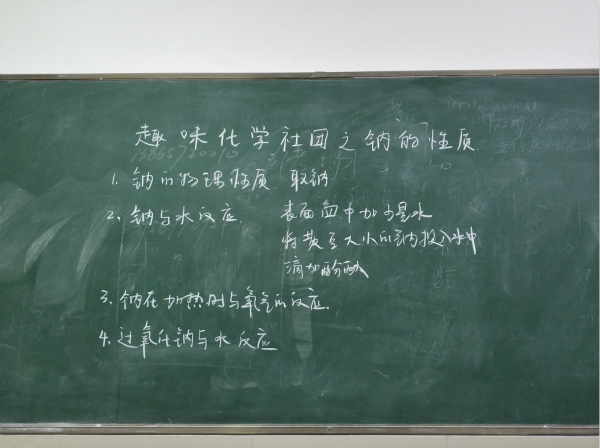 趣味化学社团之钠的性质
1. 钠的物理性质 取钠
2. 钠与水反应. 表面皿中加少量水
将黄豆大小的钠投入水中
滴加酚酞
3. 钠在加热时与氧气的反应.
4. 过氧化钠与水反应